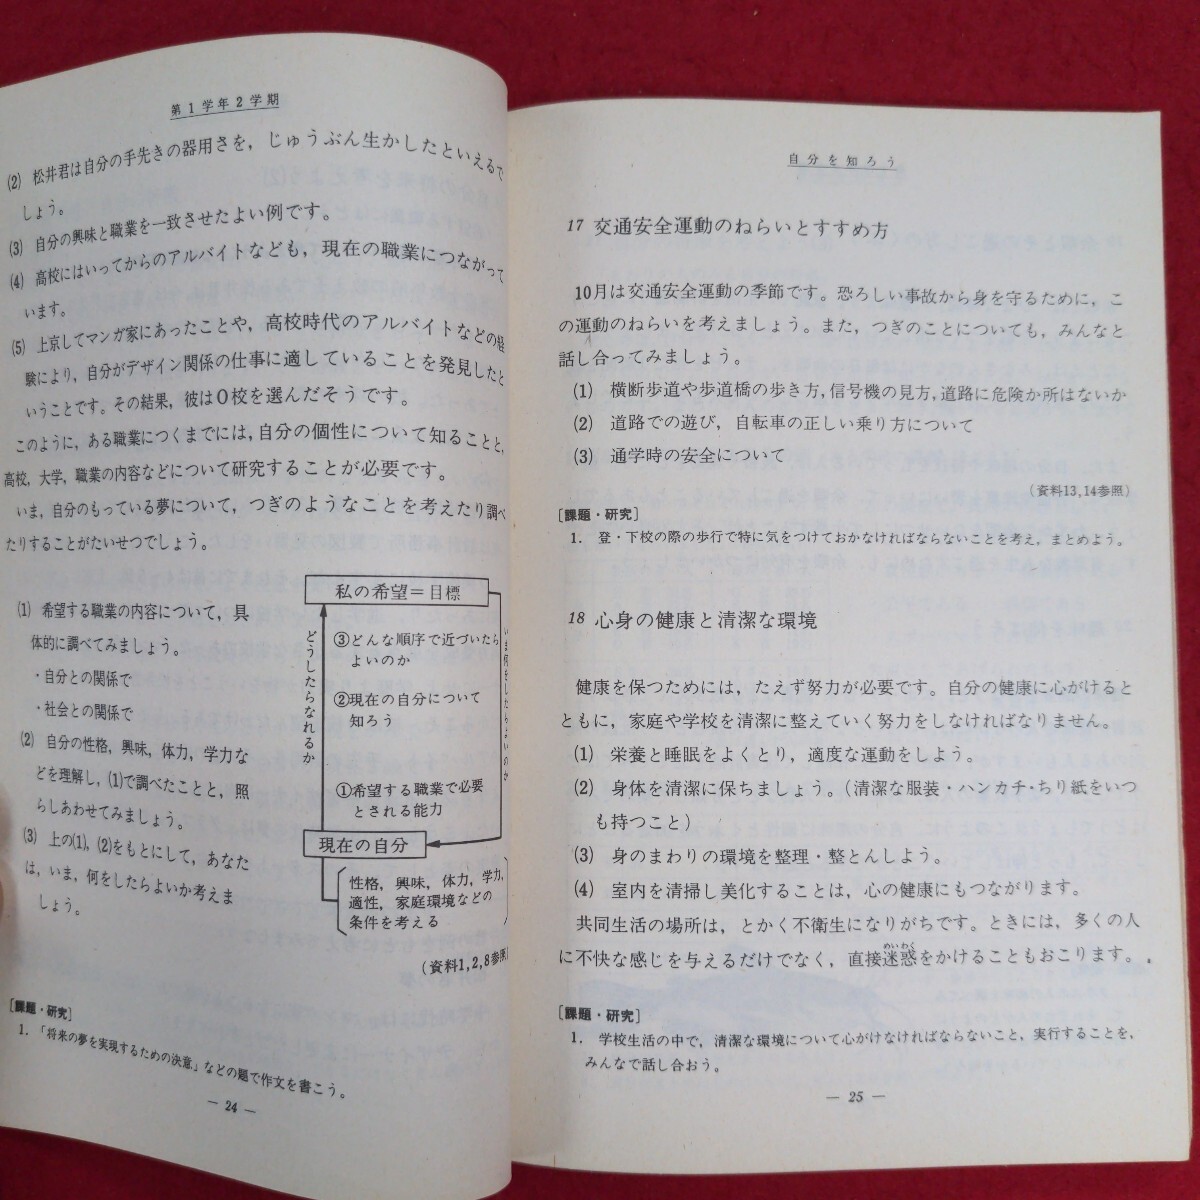 第1学年2学期
(2) 松井君は自分の手先きの器用さを，じゅうぶん生かしたといえるで
しょう。
(3) 自分の興味と職業を一致させたよい例です。
(4) 高校にはいってからのアルバイトなども，現在の職業につながって
います。
(5) 上京してマンガ家にあったことや，高校時代のアルバイトなどの経
験により，自分がデザイン関係の仕事に適していることを発見したと
いうことです。その結果，彼はO校を選んだそうです。
このように，ある職業につくまでには，自分の個性について知ることと，
高校，大学，職業の内容などについて研究することが必要です。
いま，自分のもっている夢について，つぎのようなことを考えたり調べ
たりすることがたいせつでしょう。
(1) 希望する職業の内容について，具
体的に調べてみましょう。
・自分との関係で
・社会との関係で
(2) 自分の性格，興味，体力，学力な
どを理解し，(1)で調べたことと，照
らしあわせてみましょう。
(3) 上の(1)，(2)をもとにして，あなた
は，いま，何をしたらよいか考えま
しょう。
私の希望＝目標
どうしたらなれるか
③どんな順序で近づいたら
よいのか
②現在の自分について
知ろう
①希望する職業で必要
とされる能力
いま何をしたらよいのか
現在の自分
性格，興味，体力，学力，
適性，家庭環境などの
条件を考える
(資料1,2,8参照)
[課題・研究]
1．「将来の夢を実現するための決意」などの題で作文を書こう。
— 24 —
自分を知ろう
17 交通安全運動のねらいとすすめ方
10月は交通安全運動の季節です。恐ろしい事故から身を守るために，こ
の運動のねらいを考えましょう。また，つぎのことについても，みんなと
話し合ってみましょう。
(1) 横断歩道や歩道橋の歩き方，信号機の見方，道路に危険か所はないか
(2) 道路での遊び，自転車の正しい乗り方について
(3) 通学時の安全について
(資料13,14参照)
[課題・研究]
1． 登・下校の際の歩行で特に気をつけておかなければならないことを考え，まとめよう。
18 心身の健康と清潔な環境
健康を保つためには，たえず努力が必要です。自分の健康に心がけると
ともに，家庭や学校を清潔に整えていく努力をしなければなりません。
(1) 栄養と睡眠をよくとり，適度な運動をしよう。
(2) 身体を清潔に保ちましょう。(清潔な服装・ハンカチ・ちり紙をいつ
も持つこと)
(3) 身のまわりの環境を整理・整とんしよう。
(4) 室内を清掃し美化することは，心の健康にもつながります。
共同生活の場所は，とかく不衛生になりがちです。ときには，多くの人
に不快な感じを与えるだけでなく，直接迷惑めいわくをかけることもおこります。
[課題・研究]
1． 学校生活の中で，清潔な環境について心がけなければならないこと，実行することを，
みんなで話し合おう。
— 25 —